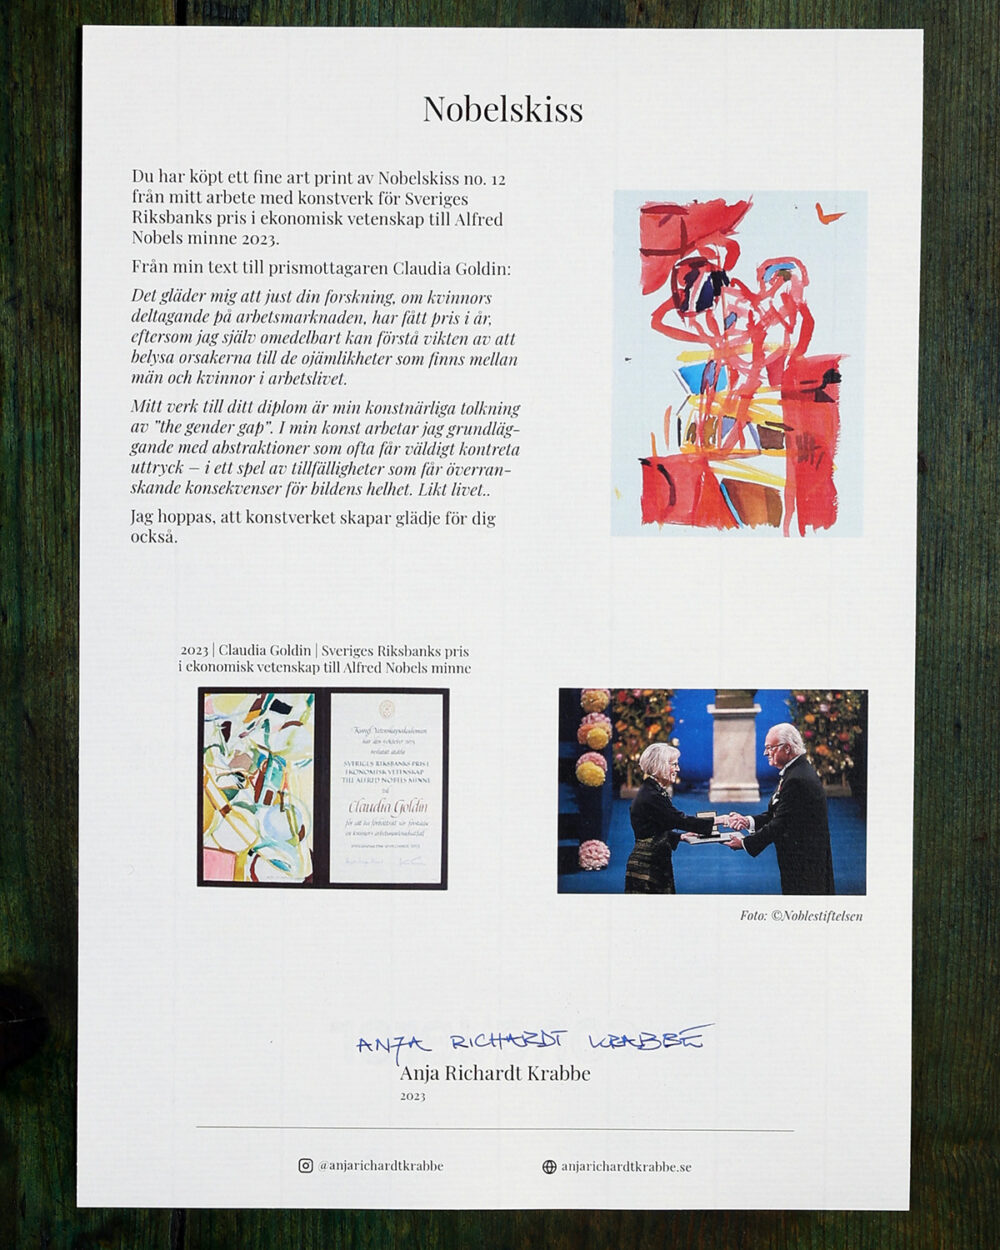 Nobelskiss
Du har köpt ett fine art print av Nobelskiss no. 12
från mitt arbete med konstverk för Sveriges
Riksbanks pris i ekonomisk vetenskap till Alfred
Nobels minne 2023.
Från min text till prismottagaren Claudia Goldin:
Det gläder mig att just din forskning, om kvinnors
deltagande på arbetsmarknaden, har fått pris i år,
eftersom jag själv omedelbart kan förstå vikten av att
belysa orsakerna till de ojämlikheter som finns mellan
män och kvinnor i arbetslivet.
Mitt verk till ditt diplom är min konstnärliga tolkning
av "the gender gap". I min konst arbetar jag grundläg-
gande med abstraktioner som ofta får väldigt kontreta
uttryck – i ett spel av tillfälligheter som får överran-
skande konsekvenser för bildens helhet. Likt livet..
Jag hoppas, att konstverket skapar glädje för dig
också.
2023 | Claudia Goldin | Sveriges Riksbanks pris
i ekonomisk vetenskap till Alfred Nobels minne
Kungl. Vetenskapsakademien
har den oktober 2023
beslutat utdela
SVERIGES RIKSBANKS PRIS I
EKONOMISK VETENSKAP
TILL ALFRED NOBELS MINNE
Claudia Goldin
för att ha förbättrat vår förståelse
av kvinnors arbetsmarknadsutfall
Foto: ©Noblestiftelsen
ANJA RICHARDT KRABBE
Anja Richardt Krabbe
2023
@anjarichardtkrabbe
anjarichardtkrabbe.se